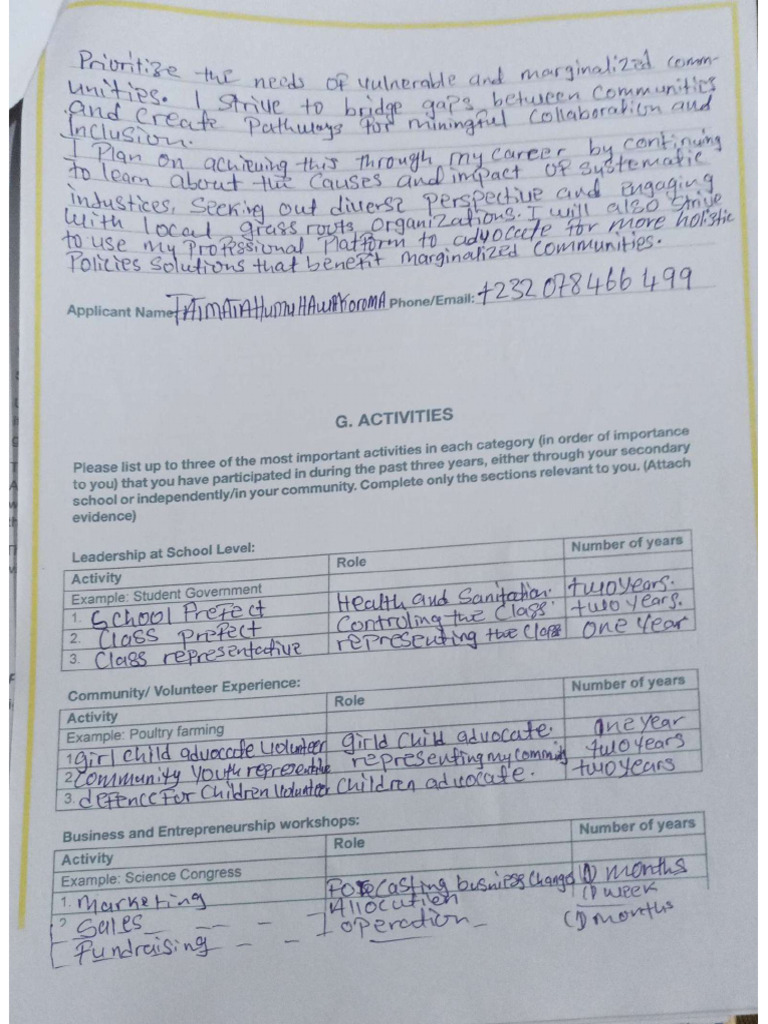 Prioritize the needs of vulnerable and marginalized comm-
unities. I strive to bridge gaps between communities
and create Pathways for miningful collaboration and
Inclusion.
I Plan on achieving this through my career by continuing
to learn about the causes and impact of systematic
industices, seeking out diverse perspective and engaging
with local grassroots organizations. I will also strive
to use my Professional Platform to advocate for more holistic
Policies solutions that benefit marginalized communities.
Applicant Name: FATMATA Humu HAWA Koroma Phone/Email: +232 078466 499
G. ACTIVITIES
Please list up to three of the most important activities in each category (in order of importance
to you) that you have participated in during the past three years, either through your secondary
school or independently/in your community. Complete only the sections relevant to you. (Attach
evidence)
Leadership at School Level:
Activity Role Number of years
Example: Student Government
1. School Prefect Health and Sanitation. two years.
2. Class prefect Controling the Class. two years.
3. Class representative representing the Class one year
Community/ Volunteer Experience:
Activity Role Number of years
Example: Poultry farming
1 girl child advocate volunteer girld child advocate. one year
2 Community Youth representative representing my community two years
3. defence For Children Volunteer Children advocate. two years
Business and Entrepreneurship workshops:
Activity Role Number of years
Example: Science Congress
1. Marketing Forecasting business Change (1) months
2 Sales Allocution (1) week
Fundraising operation (1) months